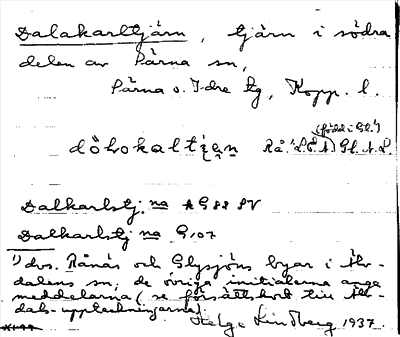 Dalakarltjärn, tjärn i södra
delen av Särna sn,
Särna o. Idre tg, Kopp. l.
(född i Gl.¹)
Rå.¹ L.E.A. Gl. A.L.
Dalkarlstj. na AG 88 SV
Dalkarlstj na G.107
¹) dvs. Rånäs och Glysjöns byar i Älv-
dalens sn, de övriga initialerna ange
meddelarna (se försättskort till Älv-
dals-uppteckningarna)
Helge Lindberg 1937.